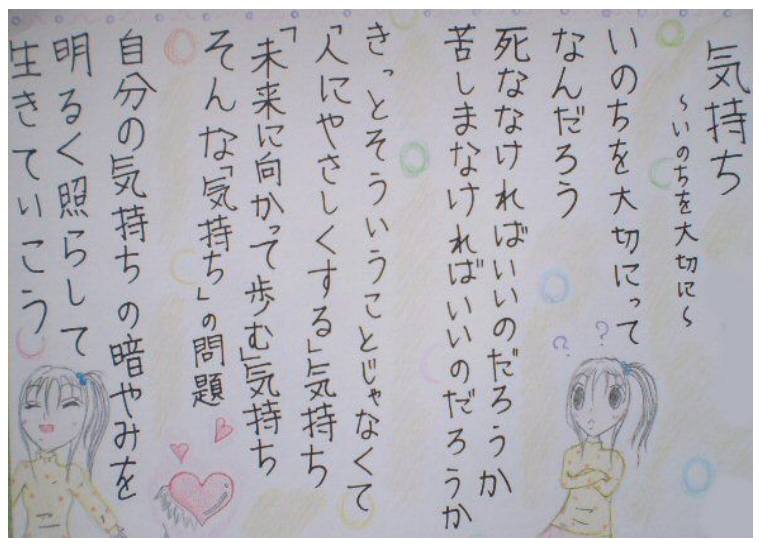 気持ち
～いのちを大切に～
いのちを大切にって
なんだろう
死ななければいいのだろうか
苦しまなければいいのだろうか
きっとそういうことじゃなくて
「人にやさしくする」気持ち
「未来に向かって歩む」気持ち
そんな「気持ち」の問題
自分の気持ちの暗やみを
明るく照らして
生きていこう
? ?